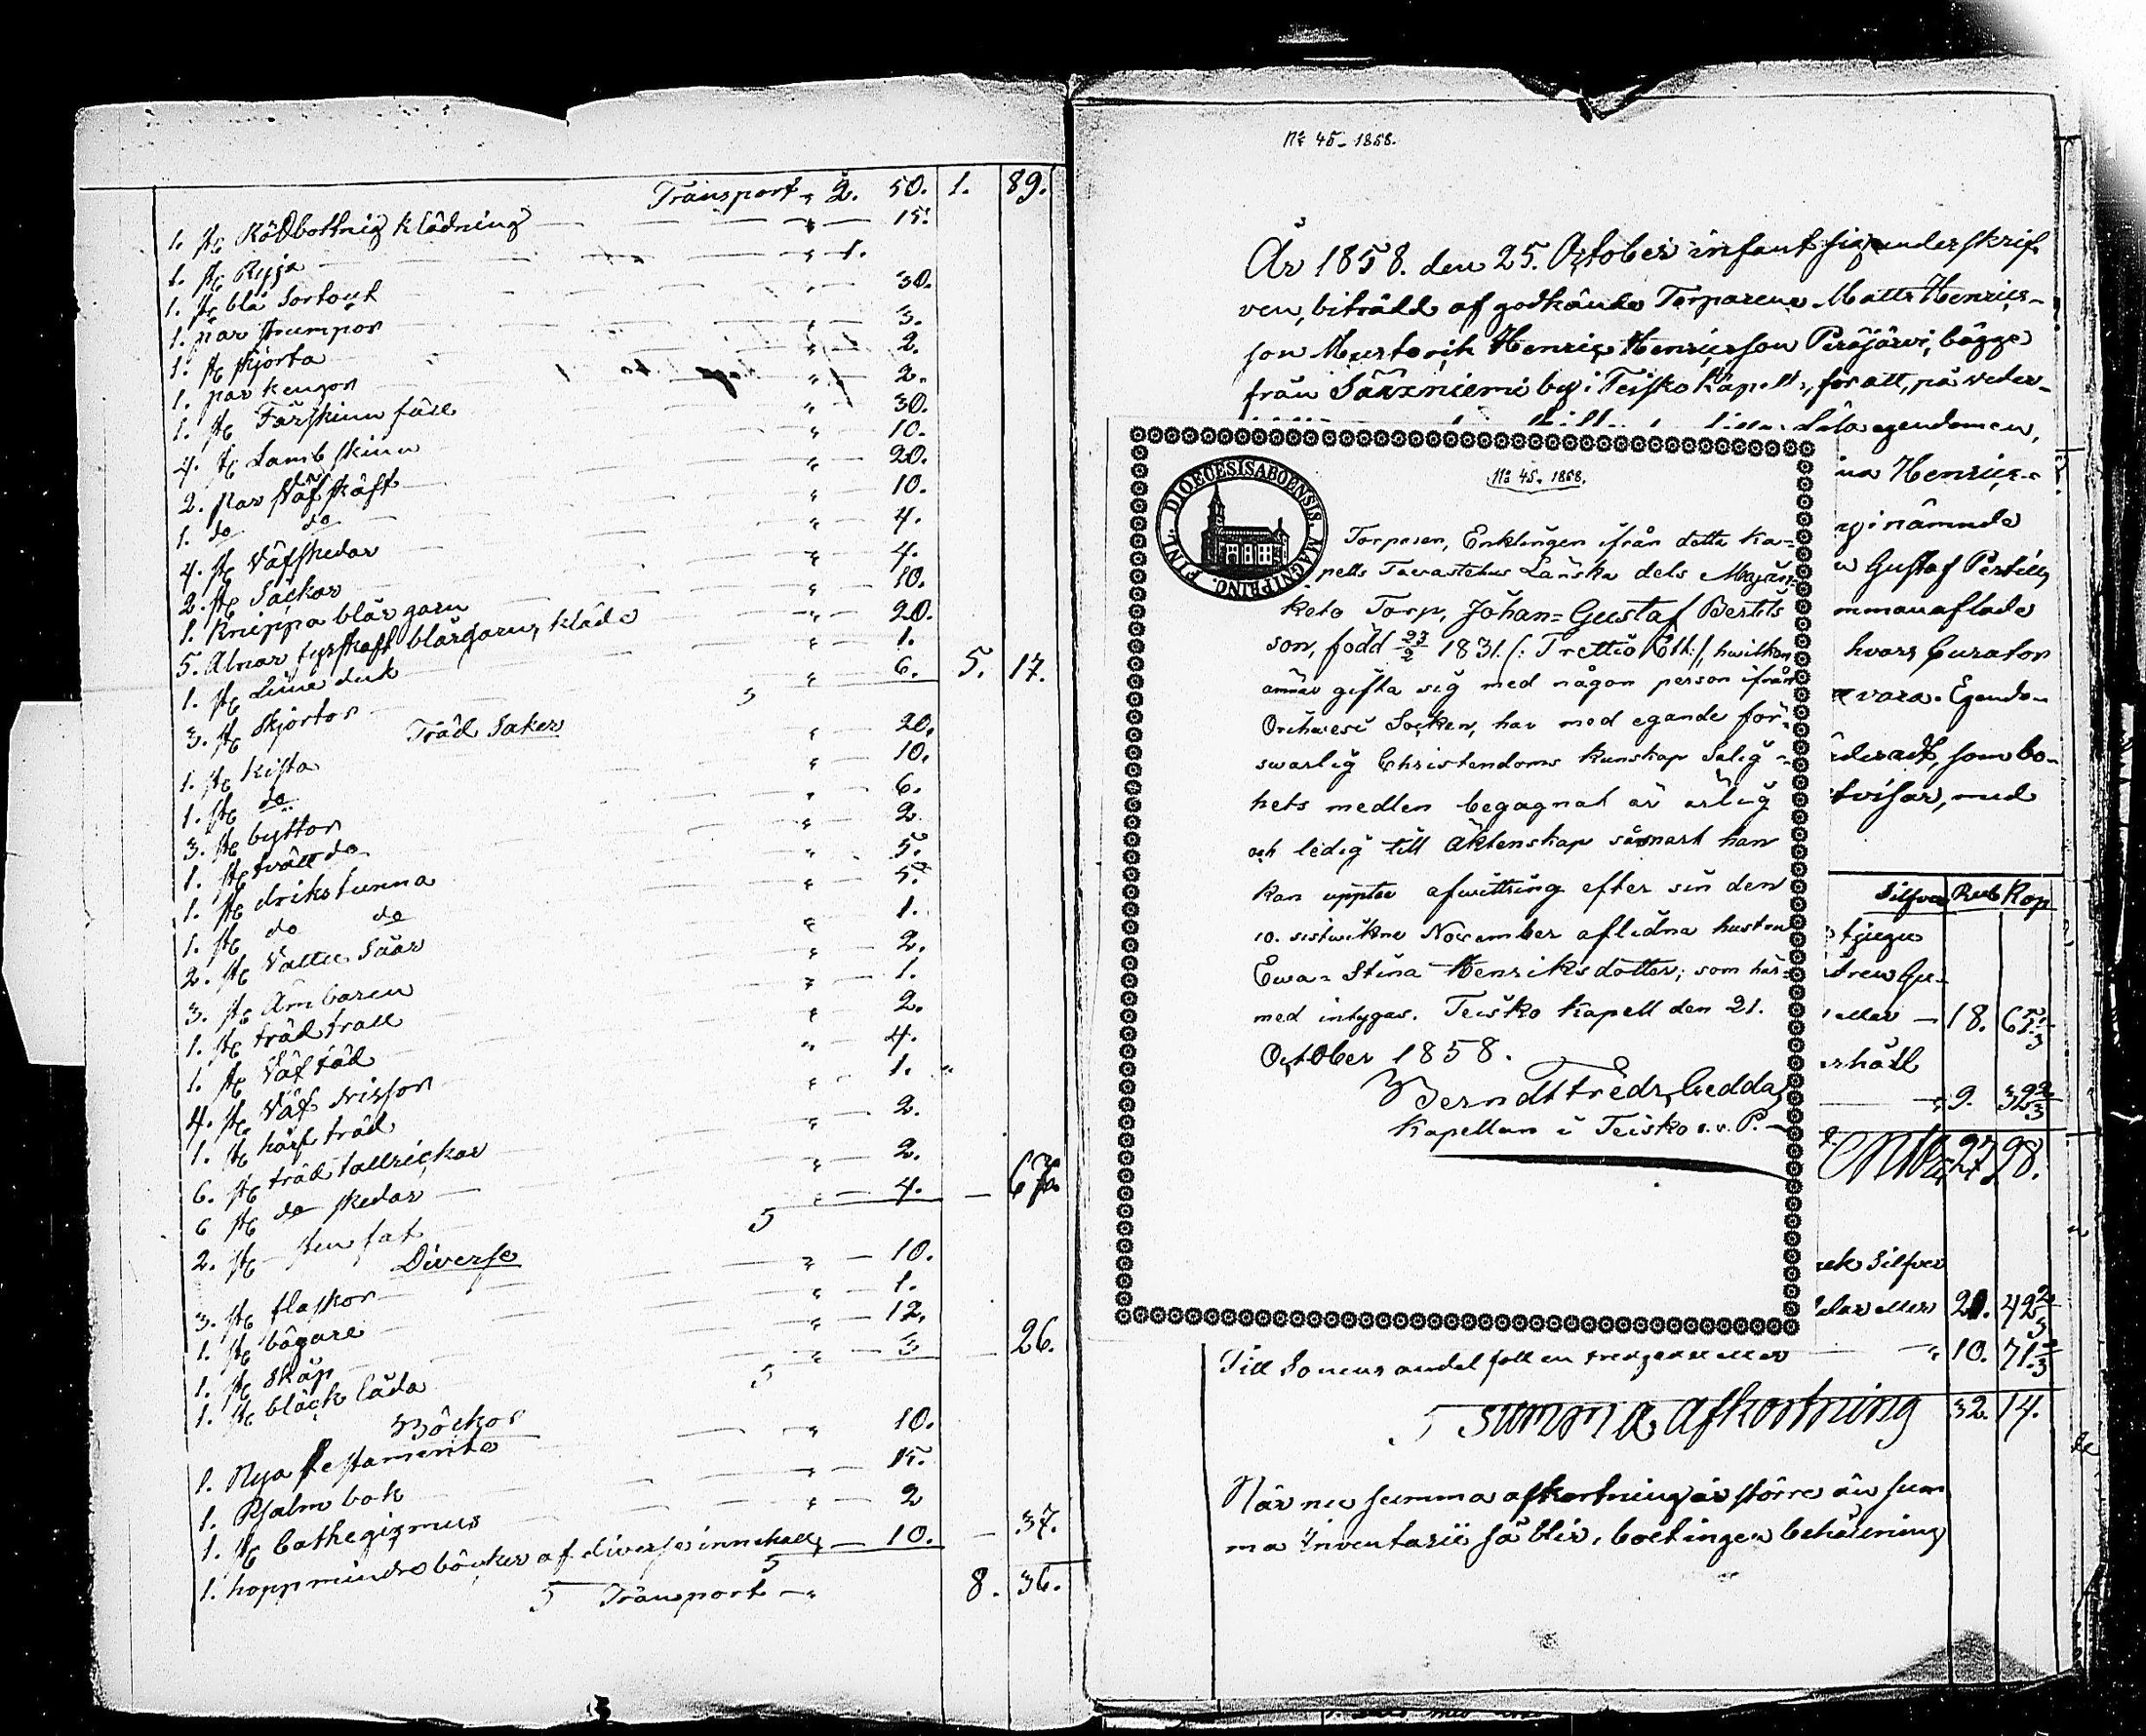 Transport " 2. 50. 1. 89.
1. st Rödbottnig klädning " 15.
1. st Ryja " 1.
1. st blå Sortout " 30.
1. par strumpor " 3.
1. st skjorta " 2.
1. par kengor " 2.
1. st Fårskinn fäll " 30.
4. st Lamb skinn " 10.
2. par Väfskäft " 20.
1. do do " 10.
4. st Väfskedar " 4.
2. st Säckar " 4.
1. Knippa blår garn " 10.
5. Alnar fyrskaft blårgarns kläde " 20.
1. st Linne duk " 1.
3. st Skjortor " 6. 5. 17.
Träd Saker
1. st Kista " 20.
1. st do " 10.
3. st byttor " 6.
1. st tvätt do " 2
1. st drikstunna " 5.
1. st do do " 5.
2. st Vattu Såar " 1.
3. st Ämbaren " 2.
1. st träd trall " 1.
1. st Väf " 2.
4. st Väf trissor " 4.
1. st härf träd " 1.
6. st träd tallrickar " 2.
6 st do skedar " 2.
2. st sten fat " 4. 67.
Diverse
3. st flaskor " 10.
1. st bägare " 1.
1. st Skåp " 12.
1. st bläck låda " 3 26.
Böcker
1. Nya testamente " 10.
1. Psalm bok " 15.
1. st Cathegismus " 2
1. hopp mindre böcker af diverse innehall 10. 37.
Transport " 8. 36.
No 45. 1858.
År 1858. den 25. October infant sig underskrif
ven, biträdd af godkände Torparene Matts Henrics-
son Mustoch Henric Henricsson Peräjärvi, bägge
från Säkzniemi by i Teisko Kapell, för att, på veder-
egendomen,
na Henrics-
nämnde
Gustaf Pertills
mmanaflade
hvars Curator
vara. Egendo-
som bo-
tvisar, med
Silfver Rub Kop
18. 65 1/3
rhåll
9. 32 2/3
27. 98.
Silfver
eller 21. 42 2/3
Till Sonens andel " 10. 71 1/3
Summa afkortning 32. 14.
När nu summa afkortning är större än sum
ma Inventarii så blir, boet ingen behållning
DIOECESIS ABOENSIS. MAGNI PRINC. FINL.
No 45. 1858.
Torparen, Enklingen ifrån detta Ka-
pells Tavastehus Länska dels Majan-
keto Torp, Johan-Gustaf Bertils
son, född 23/2 1831. (: Trettio Ett :), hwilken
ämnar gifta sig med någon person ifrån
Orihwesi Socken, har med egande för-
swarlig Christendoms kunskap Salig-
hets medlen begagnat är ärlig
och ledig till Äktenskap såsnart han
kan uppte afwittring efter sin den
10. sistwikne November aflidna hustru
Ewa-Stina Henriksdotter; som här-
med intygas. Teisko Kapell den 21.
October 1858.
Berndt Fredr. Gedda
Kapellan i Teisko o. v. P.